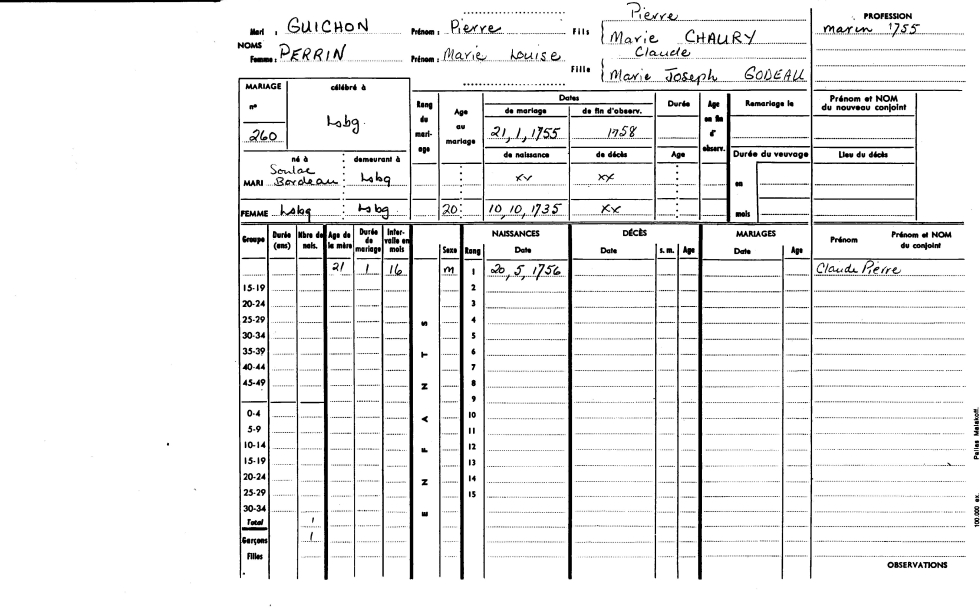 Pierre
PROFESSION
Mari : GUICHON Prénom : Pierre Fils Marie CHAURY marin 1755
NOMS
Claude
Femme : PERRIN Prénom : Marie Louise
Fille Marie Joseph GODEAU
MARIAGE célébré à
n° 260 Lsbg.
Rang du mariage
Age au mariage
Dates
de mariage de fin d'observ.
21, 1, 1755 1758
Durée
Age en fin d' observ.
Remariage le
Prénom et NOM du nouveau conjoint
né à demeurant à
de naissance de décès Age
Durée du veuvage
Lieu du décès
Soulac
MARI Bordeaux Lsbg xx xx
en
FEMME Lsbg Lsbg 20 10, 10, 1735 xx
mois
Groupe Durée (ans) Nbre de nais. Age de la mère Durée de mariage Inter- valle en mois
ENFANTS
Sexe Rang
NAISSANCES Date
DÉCÈS Date s. m. Age
MARIAGES Date Age
Prénom Prénom et NOM du conjoint
21 1 16 m 1 20, 5, 1756 Claude Pierre
15-19 2
20-24 3
25-29 4
30-34 5
35-39 6
40-44 7
45-49 8
9
0-4 10
5-9 11
10-14 12
15-19 13
20-24 14
25-29 15
30-34
Total 1
Garçons 1
Filles
OBSERVATIONS
100.000 ex.